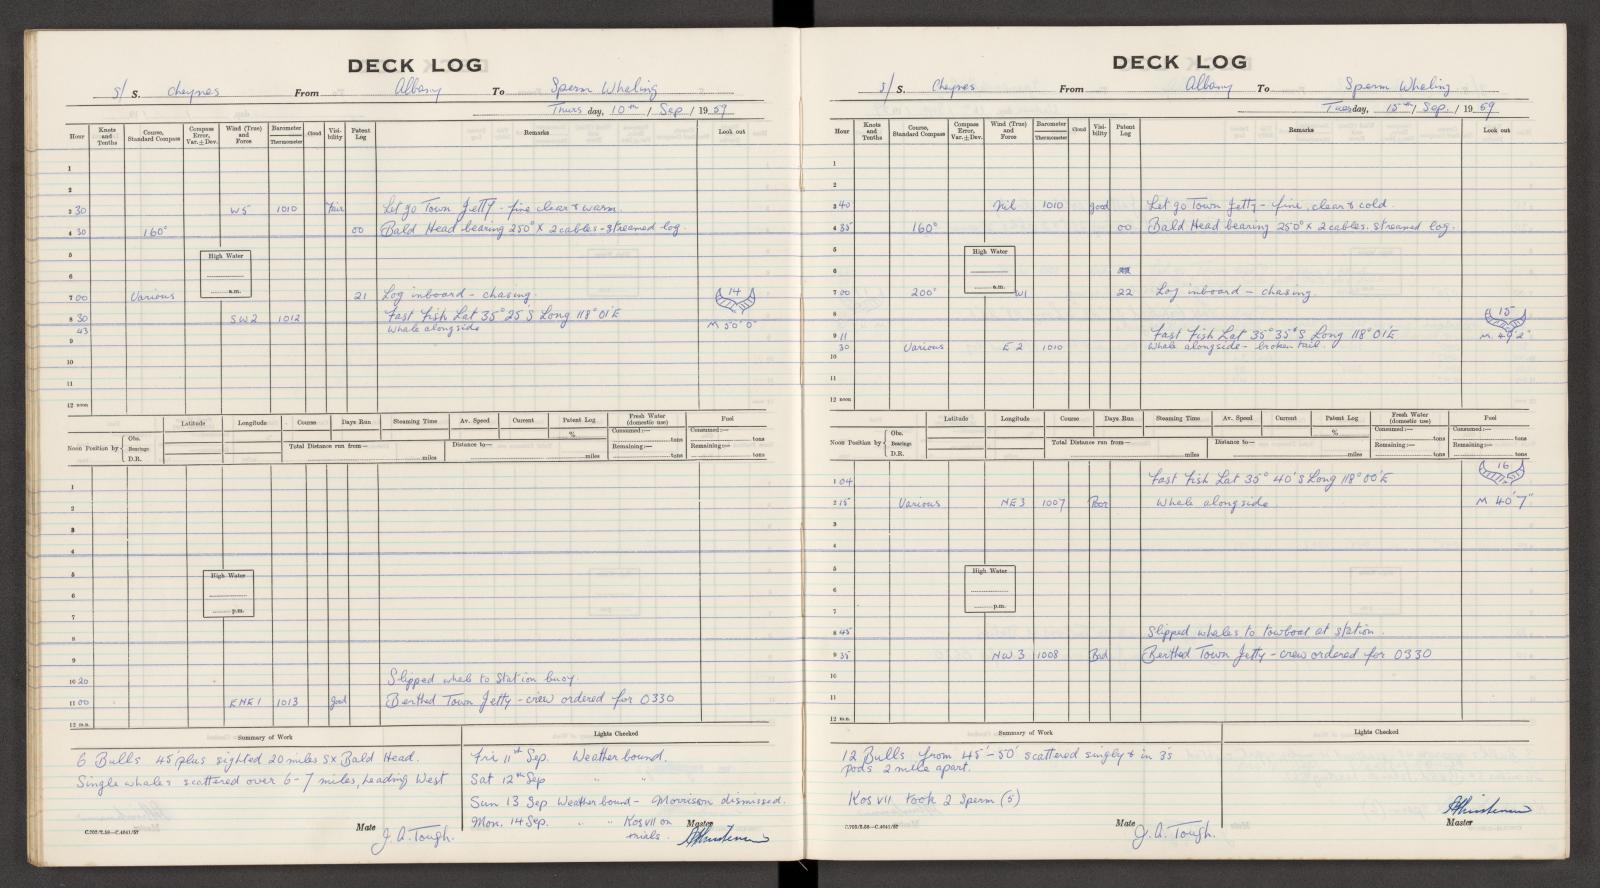 DECK LOG
S/ S. Cheynes From Albany To Sperm Whaling
Thurs day, 10th / Sep / 1959
Hour Knots and Tenths Course, Standard Compass Compass Error, Var. ± Dev. Wind (True) and Force Barometer Thermometer Cloud Visibility Patent Log Remarks Look out
1
2
3 30 W5 1010 Fair Let go Town Jetty - fine clear & warm.
4 30 160° 00 Bald Head bearing 250° x 2 cables - streamed log.
5 High Water
6
a.m.
7 00 Various 21 Log inboard - chasing. 14
8 30 SW2 1012 Fast Fish Lat 35° 25 S Long 118° 01'E M 50' 0"
43 Whale alongside
9
10
11
12 noon
Latitude Longitude Course Days Run Steaming Time Av. Speed Current Patent Log Fresh Water (domestic use) Fuel
% Consumed:— tons Consumed:— tons
Noon Position by Obs. Bearings D.R. Total Distance run from— miles Distance to— miles Remaining:— tons Remaining:— tons
1
2
3
4
5 High Water
6
p.m.
7
8
9
10 20 Slipped whale to Station buoy.
11 00 ENE 1 1013 good Berthed Town Jetty - crew ordered for 0330
12 m.n.
Summary of Work Lights Checked
6 Bulls 45' plus sighted 20 miles SX Bald Head.
Single whales scattered over 6-7 miles, heading West
Fri 11th Sep. Weather bound.
Sat 12th Sep " "
Sun 13 Sep Weather bound - Morrison dismissed.
Mon. 14 Sep. " " Kos VII on trials.
C.702/2.58—C.4041/57 Mate J. A. Tough. Master
DECK LOG
S/ S. Cheynes From Albany To Sperm Whaling
Tues day, 15th / Sep. / 1959
Hour Knots and Tenths Course, Standard Compass Compass Error, Var. ± Dev. Wind (True) and Force Barometer Thermometer Cloud Visibility Patent Log Remarks Look out
1
2
3 40 Nil 1010 good Let go Town Jetty - fine, clear & cold.
4 35 160° 00 Bald Head bearing 250° x 2 cables. streamed log.
5 High Water
6
a.m.
7 00 200° W1 22 Log inboard - chasing.
8 15
9 11 Fast Fish Lat 35° 35' S Long 118° 01'E M. 49' 2"
30 Various E 2 1010 Whale alongside - broken tail.
10
11
12 noon
Latitude Longitude Course Days Run Steaming Time Av. Speed Current Patent Log Fresh Water (domestic use) Fuel
% Consumed:— tons Consumed:— tons
Noon Position by Obs. Bearings D.R. Total Distance run from— miles Distance to— miles Remaining:— tons Remaining:— tons
1 04 Fast Fish Lat 35° 40' S Long 118° 00'E 16
2 15 Various NE 3 1007 Poor Whale alongside. M 40' 7"
3
4
5 High Water
6
p.m.
7
8 45 Slipped whales to towboat at station.
9 35 NW 3 1008 Bad Berthed Town Jetty - crew ordered for 0330
10
11
12 m.n.
Summary of Work Lights Checked
12 Bulls from 45'-50' scattered singly & in 3's
pods 2 mile apart.
Kos VII took 2 Sperm (5)
C.702/2.58—C.4041/57 Mate J. A. Tough. Master